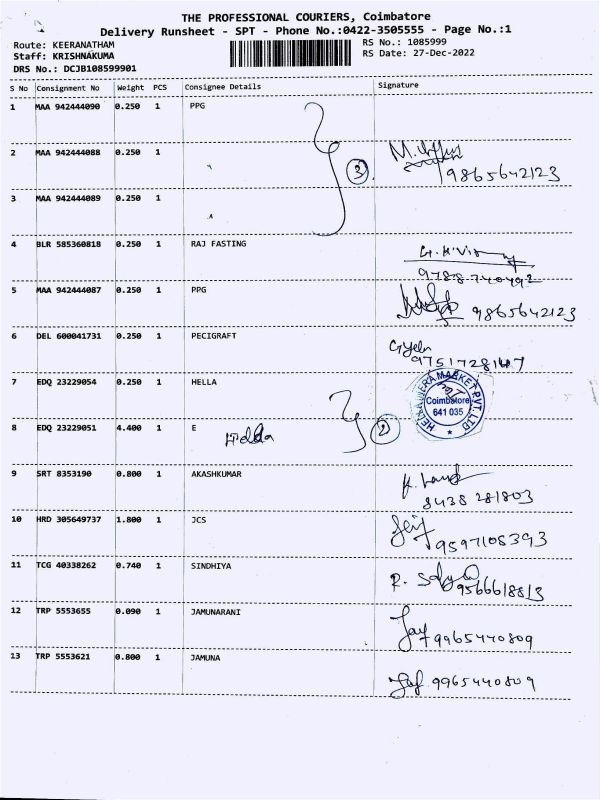 THE PROFESSIONAL COURIERS, Coimbatore
Delivery Runsheet - SPT - Phone No.:0422-3505555 - Page No.:1
Route: KEERANATHAM RS No.: 1085999
Staff: KRISHNAKUMA RS Date: 27-Dec-2022
DRS No.: DCJB108599901
S No Consignment No Weight PCS Consignee Details Signature
1 MAA 942444090 0.250 1 PPG
2 MAA 942444088 0.250 1
3
9865642123
3 MAA 942444089 0.250 1
4 BLR 585360818 0.250 1 RAJ FASTING
9788740492
5 MAA 942444087 0.250 1 PPG 9865642123
6 DEL 600041731 0.250 1 PECIGRAFT
7 EDQ 23229054 0.250 1 HELLA
HELLA INFRA MARKET PVT. LTD
Coimbatore
641 035
8 EDQ 23229051 4.400 1 E 2
9 SRT 8353190 0.800 1 AKASHKUMAR
8438 281803
10 HRD 305649737 1.800 1 JCS
9597108393
11 TCG 40338262 0.740 1 SINDHIYA
9566618813
12 TRP 5553655 0.090 1 JAMUNARANI
9965440809
13 TRP 5553621 0.800 1 JAMUNA
9965440809